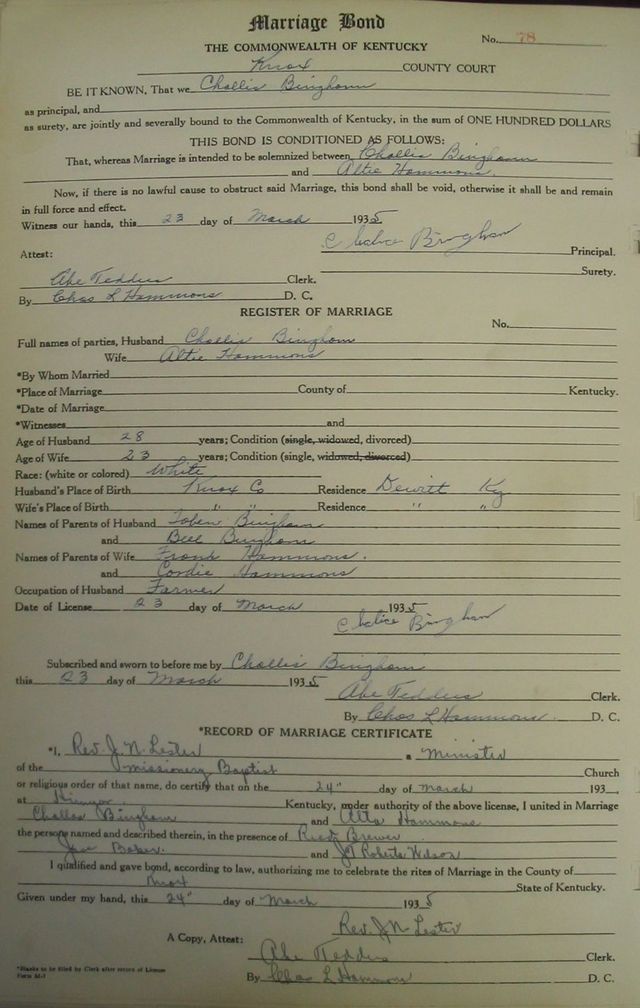 Marriage Bond
No. 78
THE COMMONWEALTH OF KENTUCKY
Knox COUNTY COURT
BE IT KNOWN, That we Challis Bingham
as principal, and
as surety, are jointly and severally bound to the Commonwealth of Kentucky, in the sum of ONE HUNDRED DOLLARS
THIS BOND IS CONDITIONED AS FOLLOWS:
That, whereas Marriage is intended to be solemnized between Challis Bingham
and Altie Hammons.
Now, if there is no lawful cause to obstruct said Marriage, this bond shall be void, otherwise it shall be and remain
in full force and effect.
Witness our hands, this 23 day of March 1935
Chalice Bingham Principal.
Attest:
Surety.
Abe Tedders Clerk.
By Chas L Hammons D. C.
REGISTER OF MARRIAGE
No.
Full names of parties, Husband Challis Bingham
Wife Altie Hammons
*By Whom Married
*Place of Marriage County of Kentucky.
*Date of Marriage
*Witnesses and
Age of Husband 28 years; Condition (single, widowed, divorced)
Age of Wife 23 years; Condition (single, widowed, divorced)
Race: (white or colored) White
Husband's Place of Birth Knox Co Residence Dewitt Ky
Wife's Place of Birth " " Residence " "
Names of Parents of Husband Toben Bingham
and Bell Bingham
Names of Parents of Wife Frank Hammons.
and Cordie Hammons
Occupation of Husband Farmer
Date of License 23 day of March 1935
Chalice Bingham
Subscribed and sworn to before me by Challis Bingham
this 23 day of March 1935
Abe Tedders Clerk.
By Chas L Hammons. D. C.
*RECORD OF MARRIAGE CERTIFICATE
*I, Rev. J. N. Lester a Minister
of the missionery Baptist Church
or religious order of that name, do certify that on the 24" day of march 193
at Kentucky, under authority of the above license, I united in Marriage
Challas Bingham and Alta Hammons
the persons named and described therein, in the presence of Brewer
Baker. and Roberts Wilson
I qualified and gave bond, according to law, authorizing me to celebrate the rites of Marriage in the County of
Knox State of Kentucky.
Given under my hand, this 24" day of March 1935
Rev. J. N. Lester
A Copy, Attest:
Abe Tedders Clerk.
By Chas L Hammons D. C.
*Blanks to be filled by Clerk after return of License
Form M-1